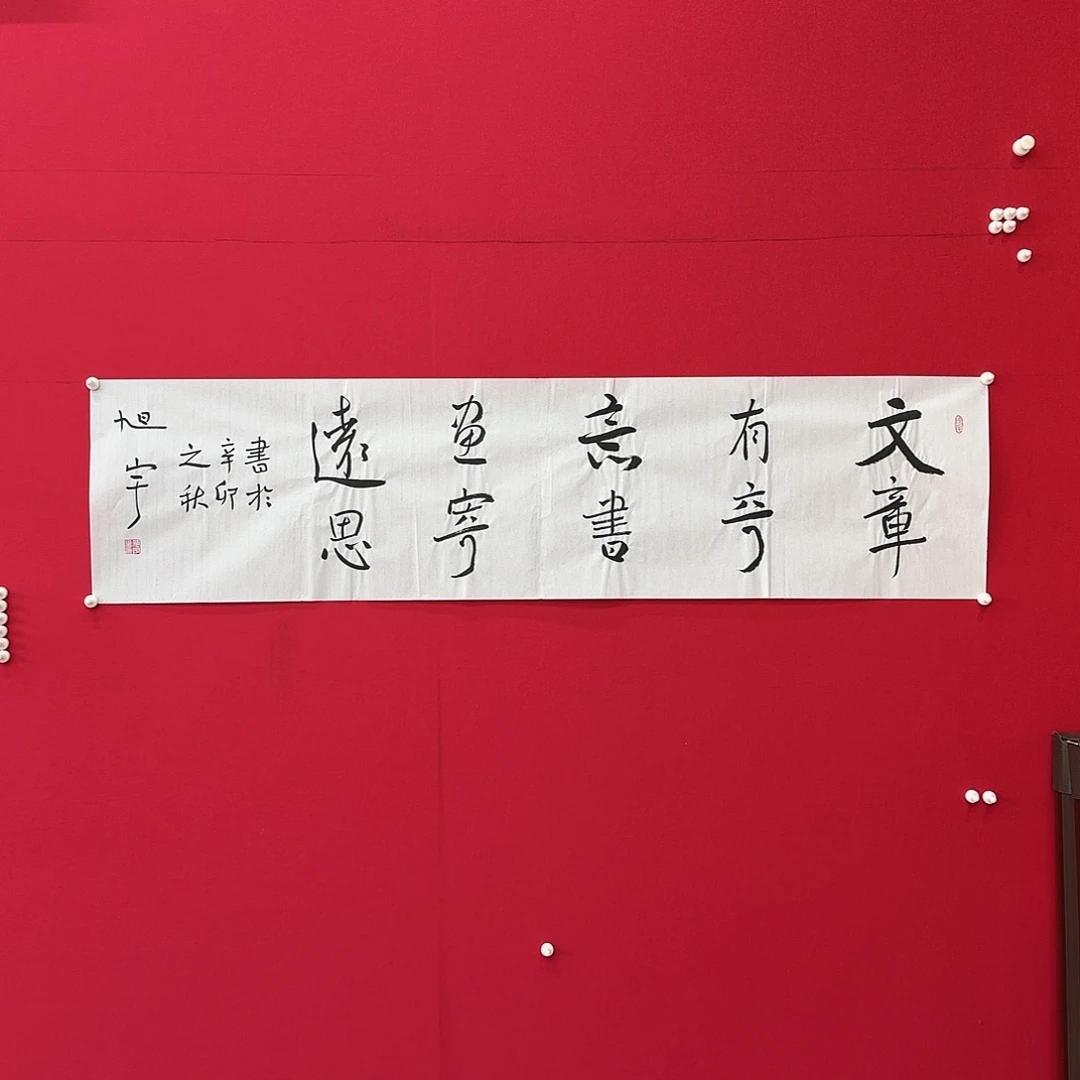 文章
有奇
書
畫寄
遠思
書於
辛卯
之秋
旭宇